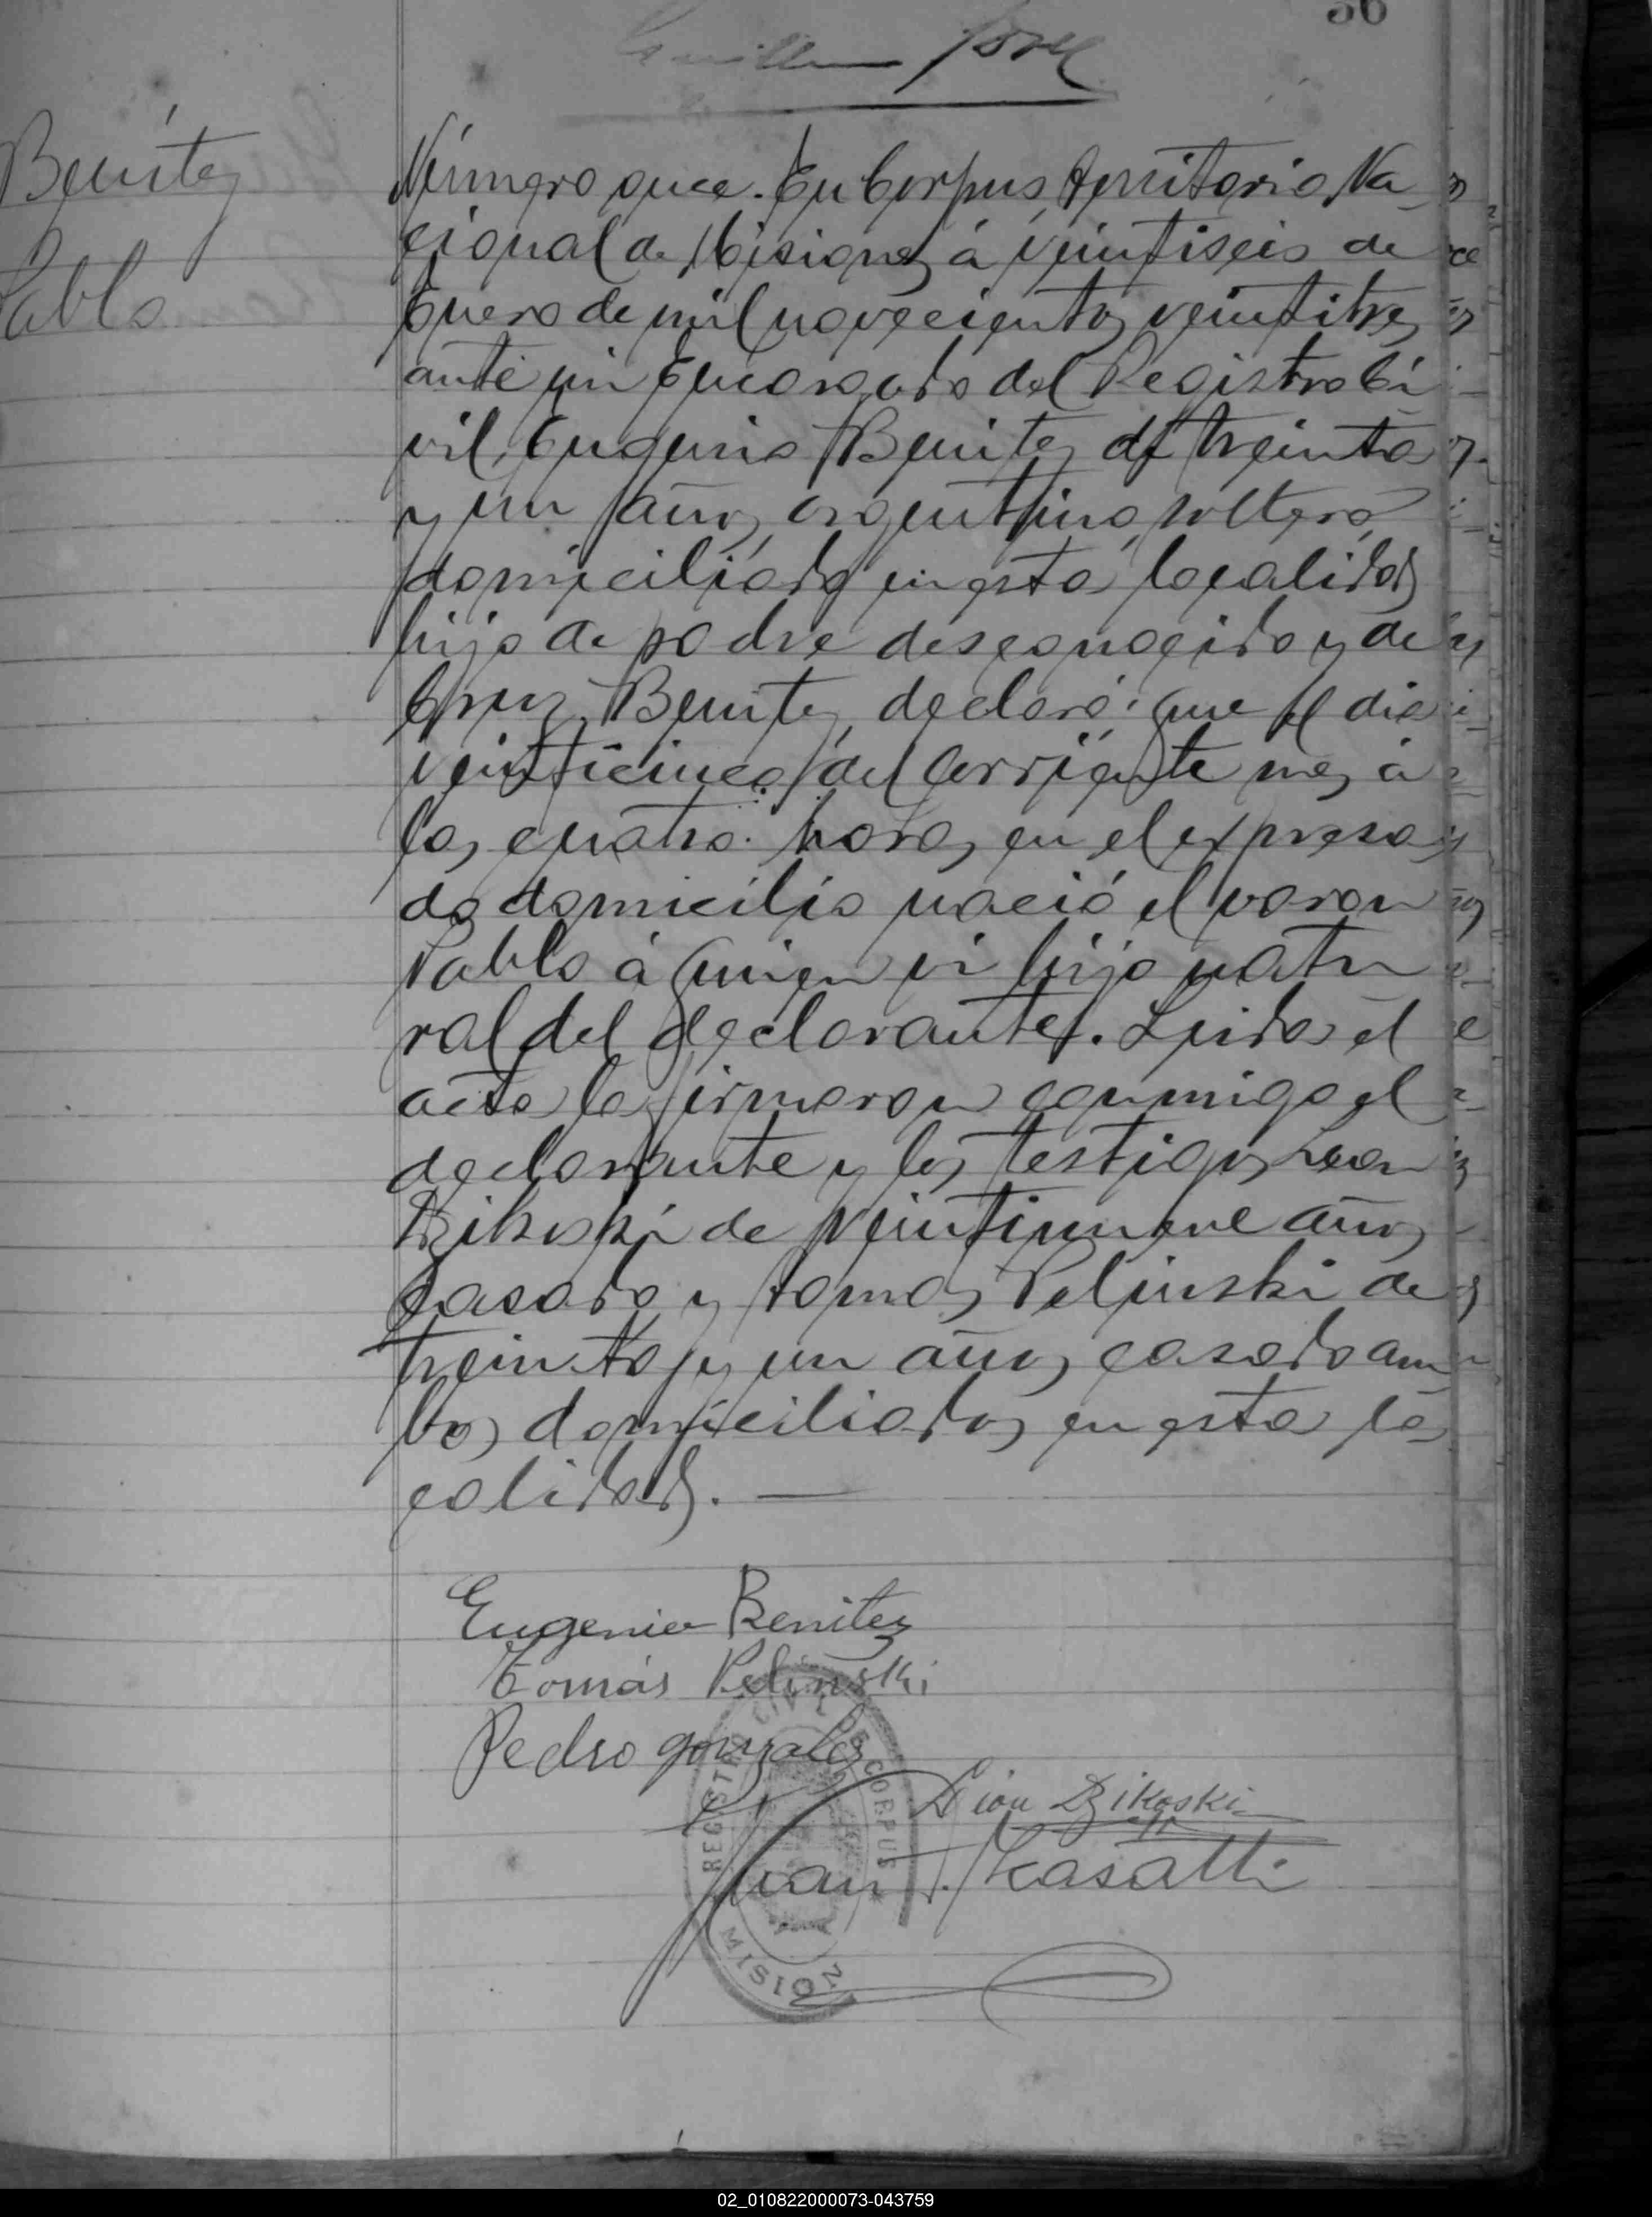 56
Benítez
Pablo
Número once. En Corpus, Territorio Na
cional de Misiones, á veintiseis de
Enero de mil novecientos veintitres,
ante mi Encargado del Registro Ci
vil, Eugenio Benitez de treinta
y un años, argentino, soltero,
domiciliado en esta localidad,
hijo de padre desconocido y de
Cruz Benitez, declaró: Que el dia
veinticinco del corriente mes á
las cuatro horas, en el expresa
do domicilio nació el varon
Pablo á quien vi hijo natu
ral del declarante. Leida el
acta la firmaron conmigo el
declarante y los testigos Leon
Dzikoski de veintinueve años,
casado y Tomas Pelinski de
treinta y un años, casado am
bos domiciliados en esta lo
calidad.
Eugenio Benitez
Tomás Pelinski
Pedro gonzalez
León Dzikoski
Juan J. Kasalli
REGISTRO CIVIL DE CORPUS
MISIONES
02_010822000073-043759